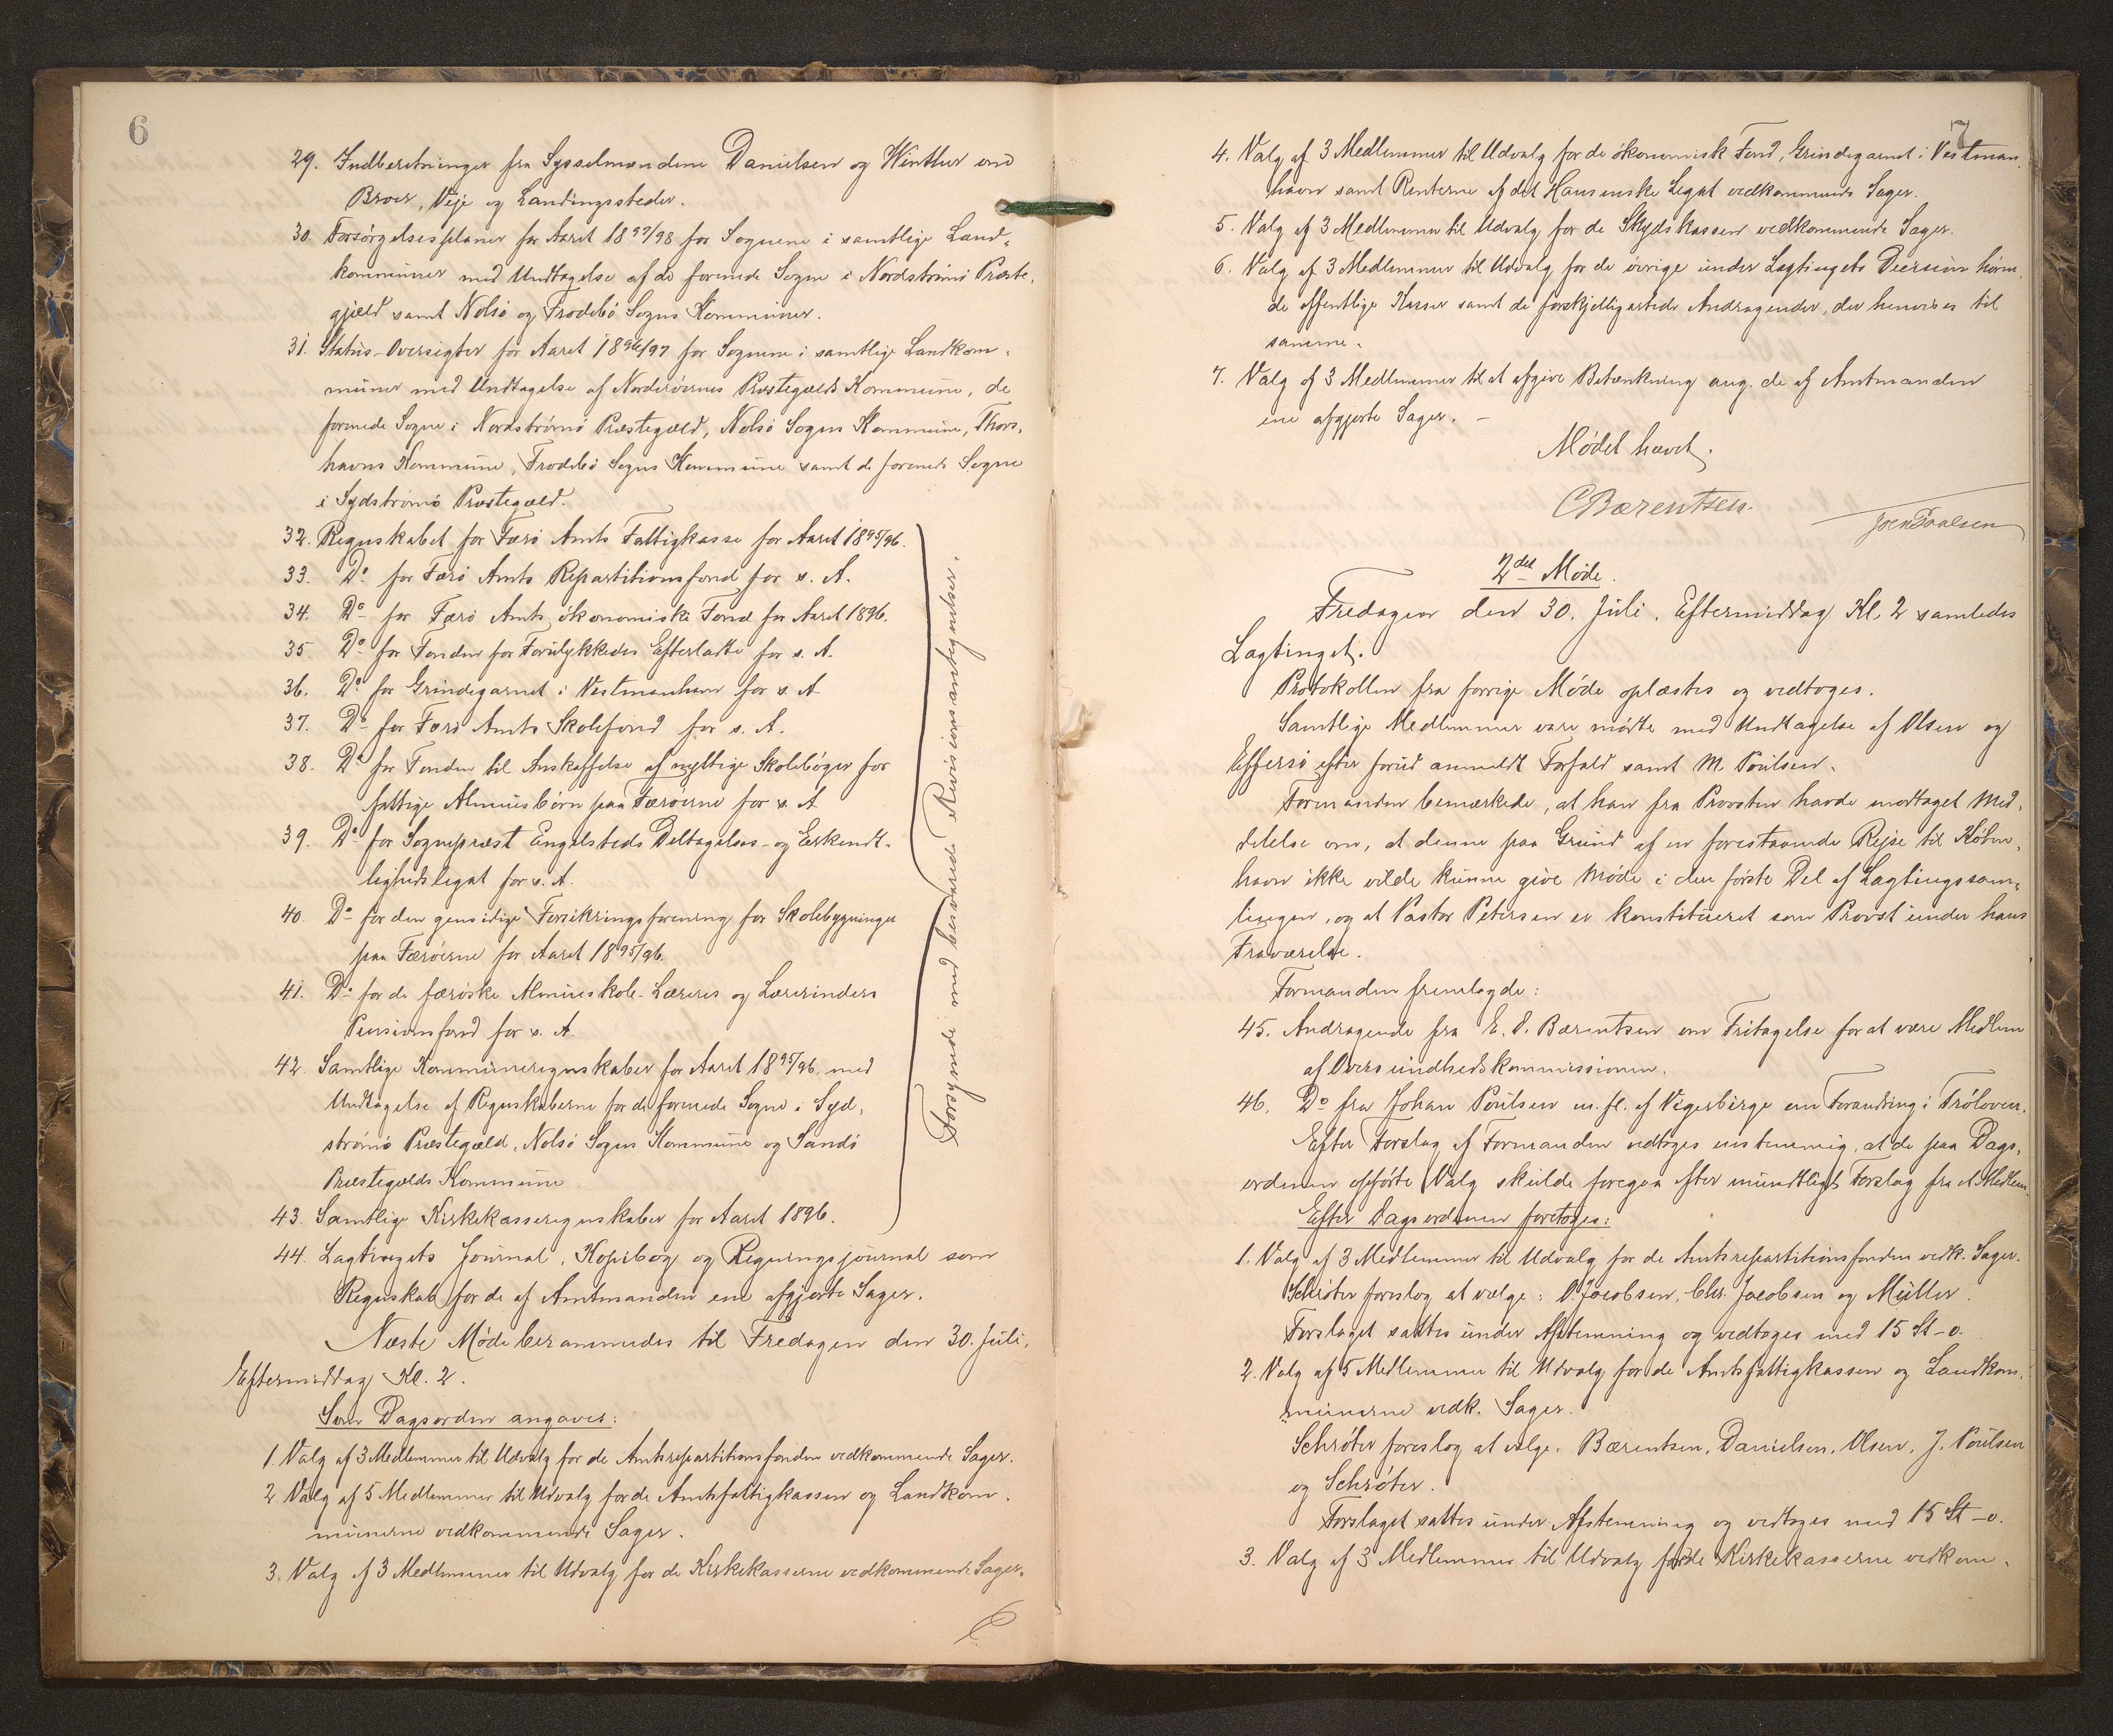 6
29. Indberetninger fra Sysselmændene Danielsen og Winther om
Broer, Veje og Landingssteder.
30. Forsørgelsesplaner for Aaret 1897/98 for Sognene i samtlige Land-
kommuner med Undtagelse af de forenede Sogne i Nordstrømø Præste-
gjæld samt Nolsø og Frodebø Sogns Kommuner.
31. Status-Oversigter for Aaret 1896/97 for Sognene i samtlige Landkom-
muner med Undtagelse af Norderøernes Præstegælds Kommune, de
forenede Sogne i Nordstrømø Præstegæld, Nolsø Sogns Kommune, Thors-
havns Kommune, Frodebø Sogns Kommune samt de forenede Sogne
i Sydstrømø Præstegæld.
32. Regnskabet for Færø Amts Fattigkasse for Aaret 1895/96.
33. Do for Færø Amts Repartitionsfond for s. A.
34. Do for Færø Amts økonomiske Fond for Aaret 1896.
35. Do for Fonden for Forulykkedes Efterladte for s. A.
36. Do for Grindegarnet i Vestmanhavn for s. A.
37. Do for Færø Amts Skolefond for s. A.
38. Do for Fonden til Anskaffelse af nyttige Skolebøger for
fattige Almuesbørn paa Færøerne for s. A.
39. Do for Sognepræst Engelsteds Deltagelses- og Erkendt-
lighedslegat for s. A.
40. Do for den gensidige Forsikringsforening for Skolebygninger
paa Færøerne for Aaret 1895/96.
41. Do for de færøske Almueskole-Læreres og Lærerinders
Pensionsfond for s. A.
42. Samtlige Kommuneregnskaber for Aaret 1895/96 med
Undtagelse af Regnskaberne for de forenede Sogne i Syd-
strømø Præstegæld, Nolsø Sogns Kommune og Sandø
Præstegælds Kommune.
43. Samtlige Kirkekasseregnskaber for Aaret 1896.
Forsynede med besvarede Revisionsantegnelser.
44. Lagtingets Journal, Kopibog og Regningsjournal som
Regnskab for de af Amtmanden ene afgjorte Sager.
Næste Møde berammedes til Fredagen den 30. Juli,
Eftermiddag Kl. 2.
Som Dagsorden angaves:
1. Valg af 3 Medlemmer til Udvalg for de Amtsrepartitionsfonden vedkommende Sager.
2. Valg af 5 Medlemmer til Udvalg for de Amtsfattigkassen og Landkom-
munerne vedkommende Sager.
3. Valg af 3 Medlemmer til Udvalg for de Kirkekasserne vedkommende Sager.
7
4. Valg af 3 Medlemmer til Udvalg for de økonomisk Fond, Grindegarnet i Vestman-
havn samt Renterne af det Hansenske Legat vedkommende Sager.
5. Valg af 3 Medlemmer til Udvalg for de Skydskassen vedkommende Sager.
6. Valg af 3 Medlemmer til Udvalg for de øvrige under Lagtingets Decision høren-
de offentlige Kasser samt de forskjelligartede Andragender, der henvises til
samme.
7. Valg af 3 Medlemmer til at afgive Betænkning ang. de af Amtmanden
ene afgjorte Sager. –
Mødet hævet.
C Bærentsen.
Joen Poulsen
2det Møde.
Fredagen den 30. Juli, Eftermiddag Kl. 2 samledes
Lagtinget.
Protokollen fra forrige Møde oplæstes og vedtoges.
Samtlige Medlemmer vare mødte med Undtagelse af Olsen og
Effersø efter forud anmeldt Forfald samt M. Poulsen.
Formanden bemærkede, at han fra Provsten havde modtaget Med-
delelse om, at denne paa Grund af en forestaaende Rejse til Køben-
havn ikke vilde kunne give Møde i den første Del af Lagtingssam-
lingen, og at Pastor Petersen er konstitueret som Provst under hans
Fraværelse.
Formanden fremlagde:
45. Andragende fra E. S. Bærentsen om Fritagelse for at være Medlem
af Oversundhedskommissionen.
46. Do fra Johan Poulsen m. fl. af Vigerbirge om Forandring i Trøloven.
Efter Forslag af Formanden vedtoges enstemmig, at de paa Dags-
ordenen opførte Valg skulde foregaa efter mundtligt Forslag fra et Medlem.
Efter Dagsordenen foretoges:
1. Valg af 3 Medlemmer til Udvalg for de Amtsrepartitionsfonden vedk. Sager.
Schrøter foreslog at vælge: D. Jacobsen, Chr. Jacobsen og Müller.
Forslaget sattes under Afstemning og vedtoges med 15 St-o.
2. Valg af 5 Medlemmer til Udvalg for de Amtsfattigkassen og Landkom-
munerne vedk. Sager.
Schrøter foreslog at vælge: Bærentsen, Danielsen, Olsen, J. Poulsen
og Schrøter.
Forslaget sattes under Afstemning og vedtoges med 15 St-o.
3. Valg af 3 Medlemmer til Udvalg for de Kirkekasserne vedkom-